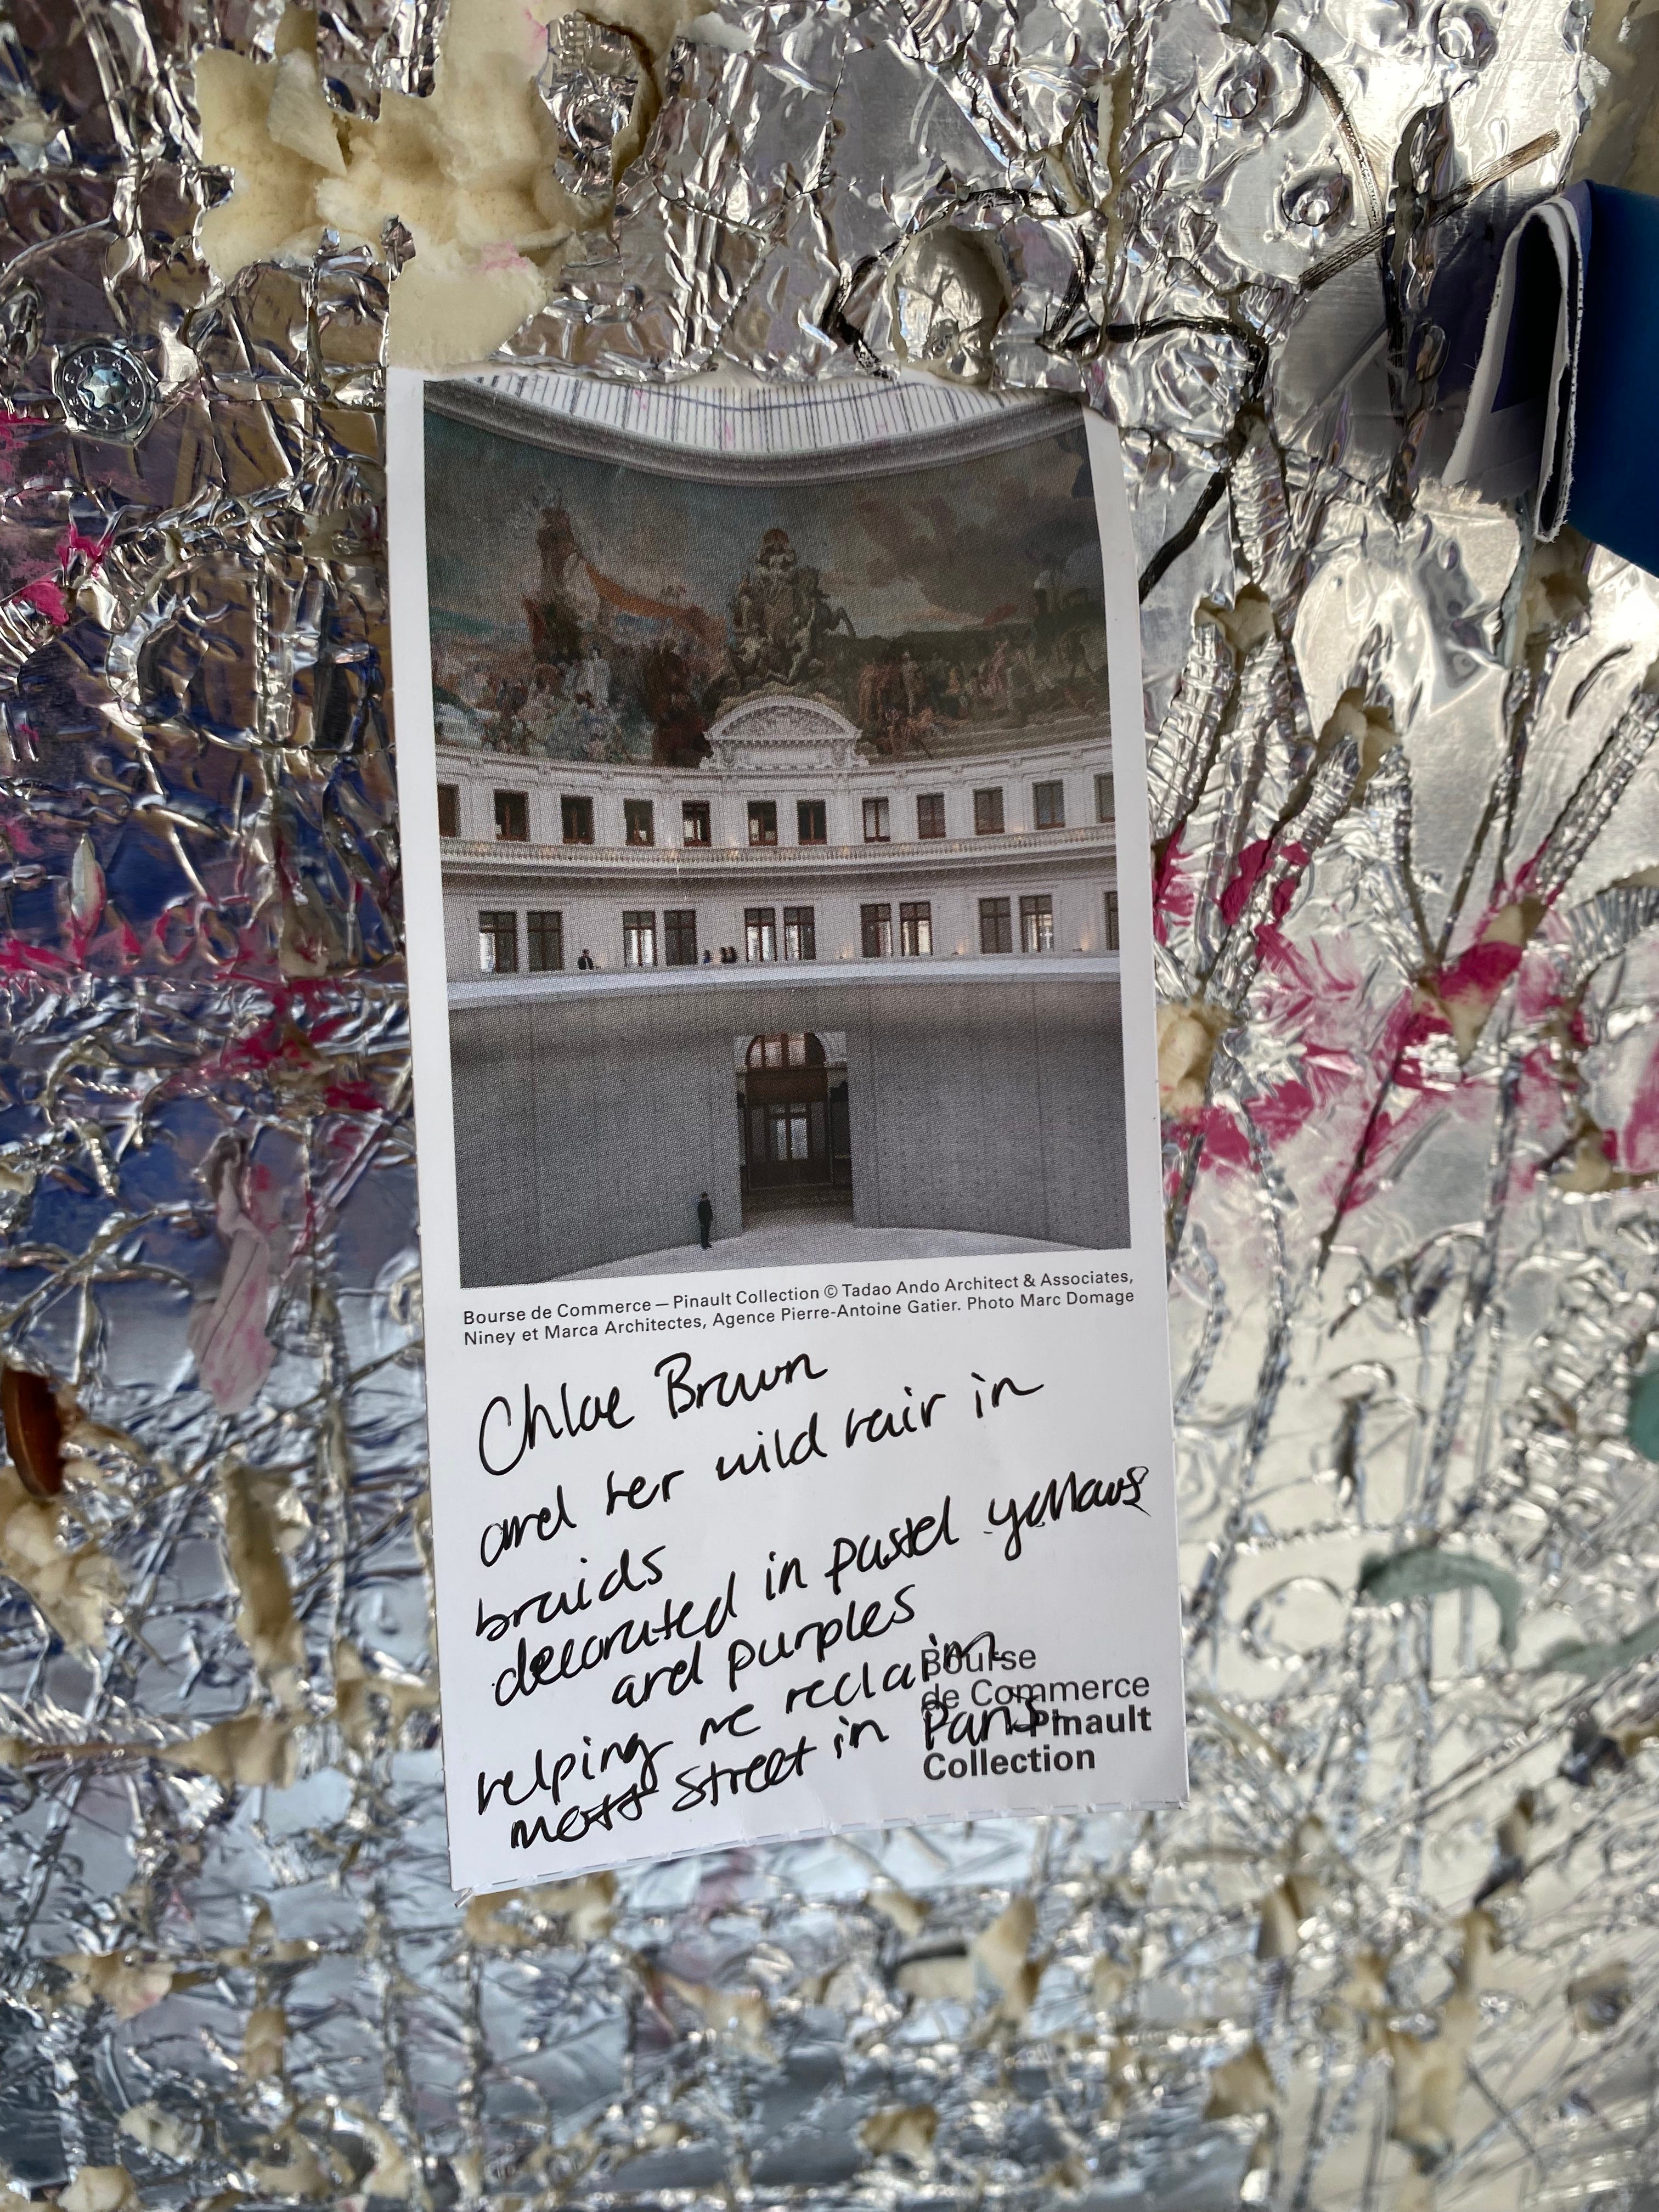 Bourse de Commerce — Pinault Collection © Tadao Ando Architect & Associates,
Niney et Marca Architectes, Agence Pierre-Antoine Gatier. Photo Marc Domage
Chloe Brown
and her wild hair in
braids
decorated in pastel yellows
and purples
helping me reclaim
Street in Paris
Bourse
de Commerce
Pinault
Collection